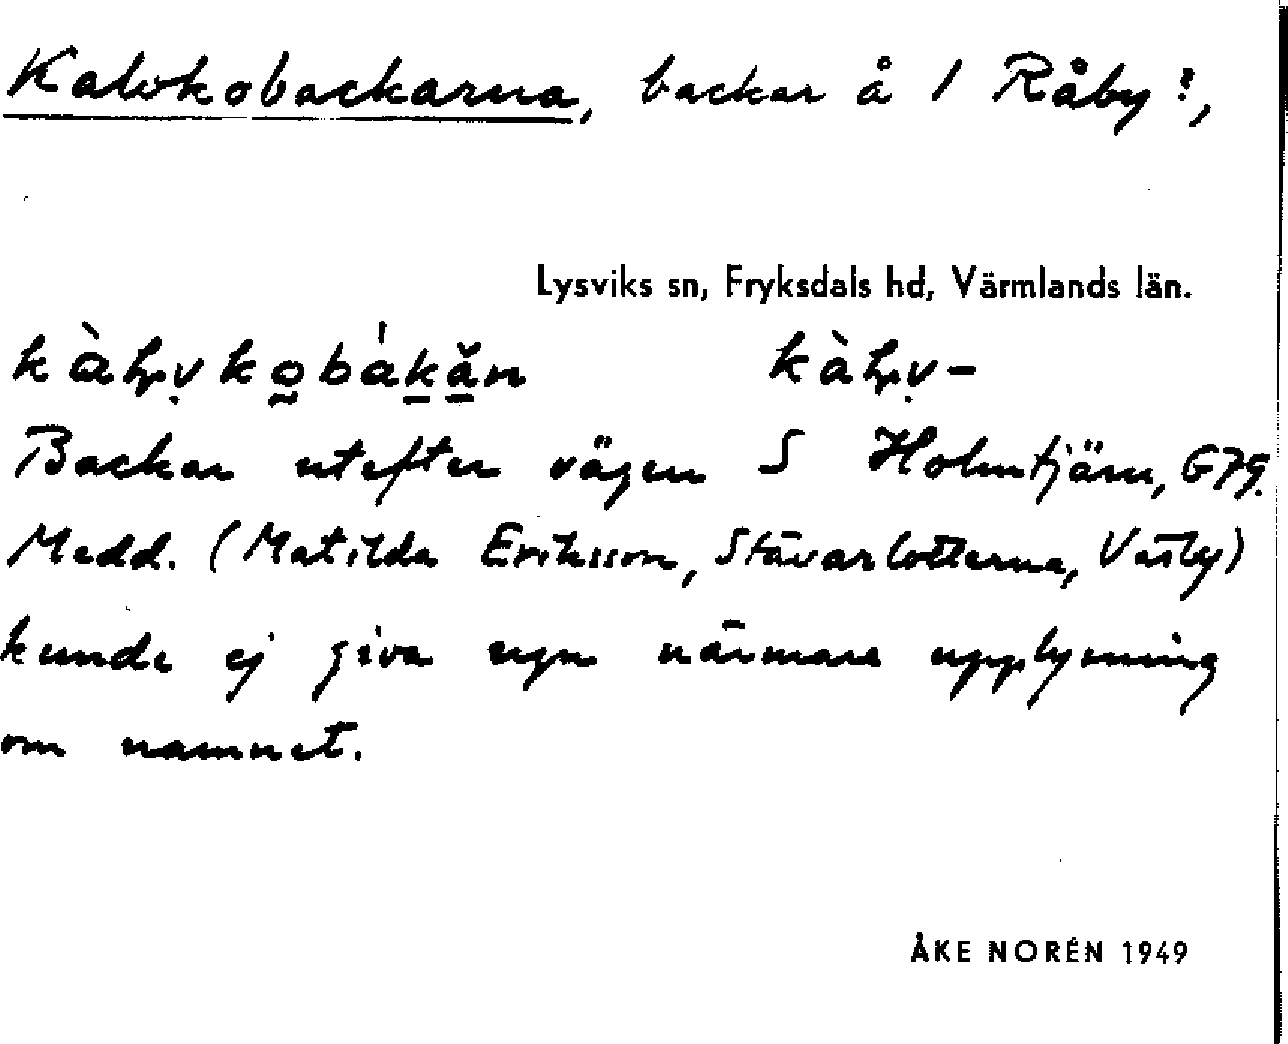 Kalvkobackarna, backar å 1 Råby?,
Lysviks sn, Fryksdals hd, Värmlands län.
Backar utefter vägen S Holmtjärn, G79.
Medd. (Matilda Eriksson, Stävarlotterna, Västby)
kunde ej giva ngn närmare upplysning
om namnet.
ÅKE NORÉN 1949